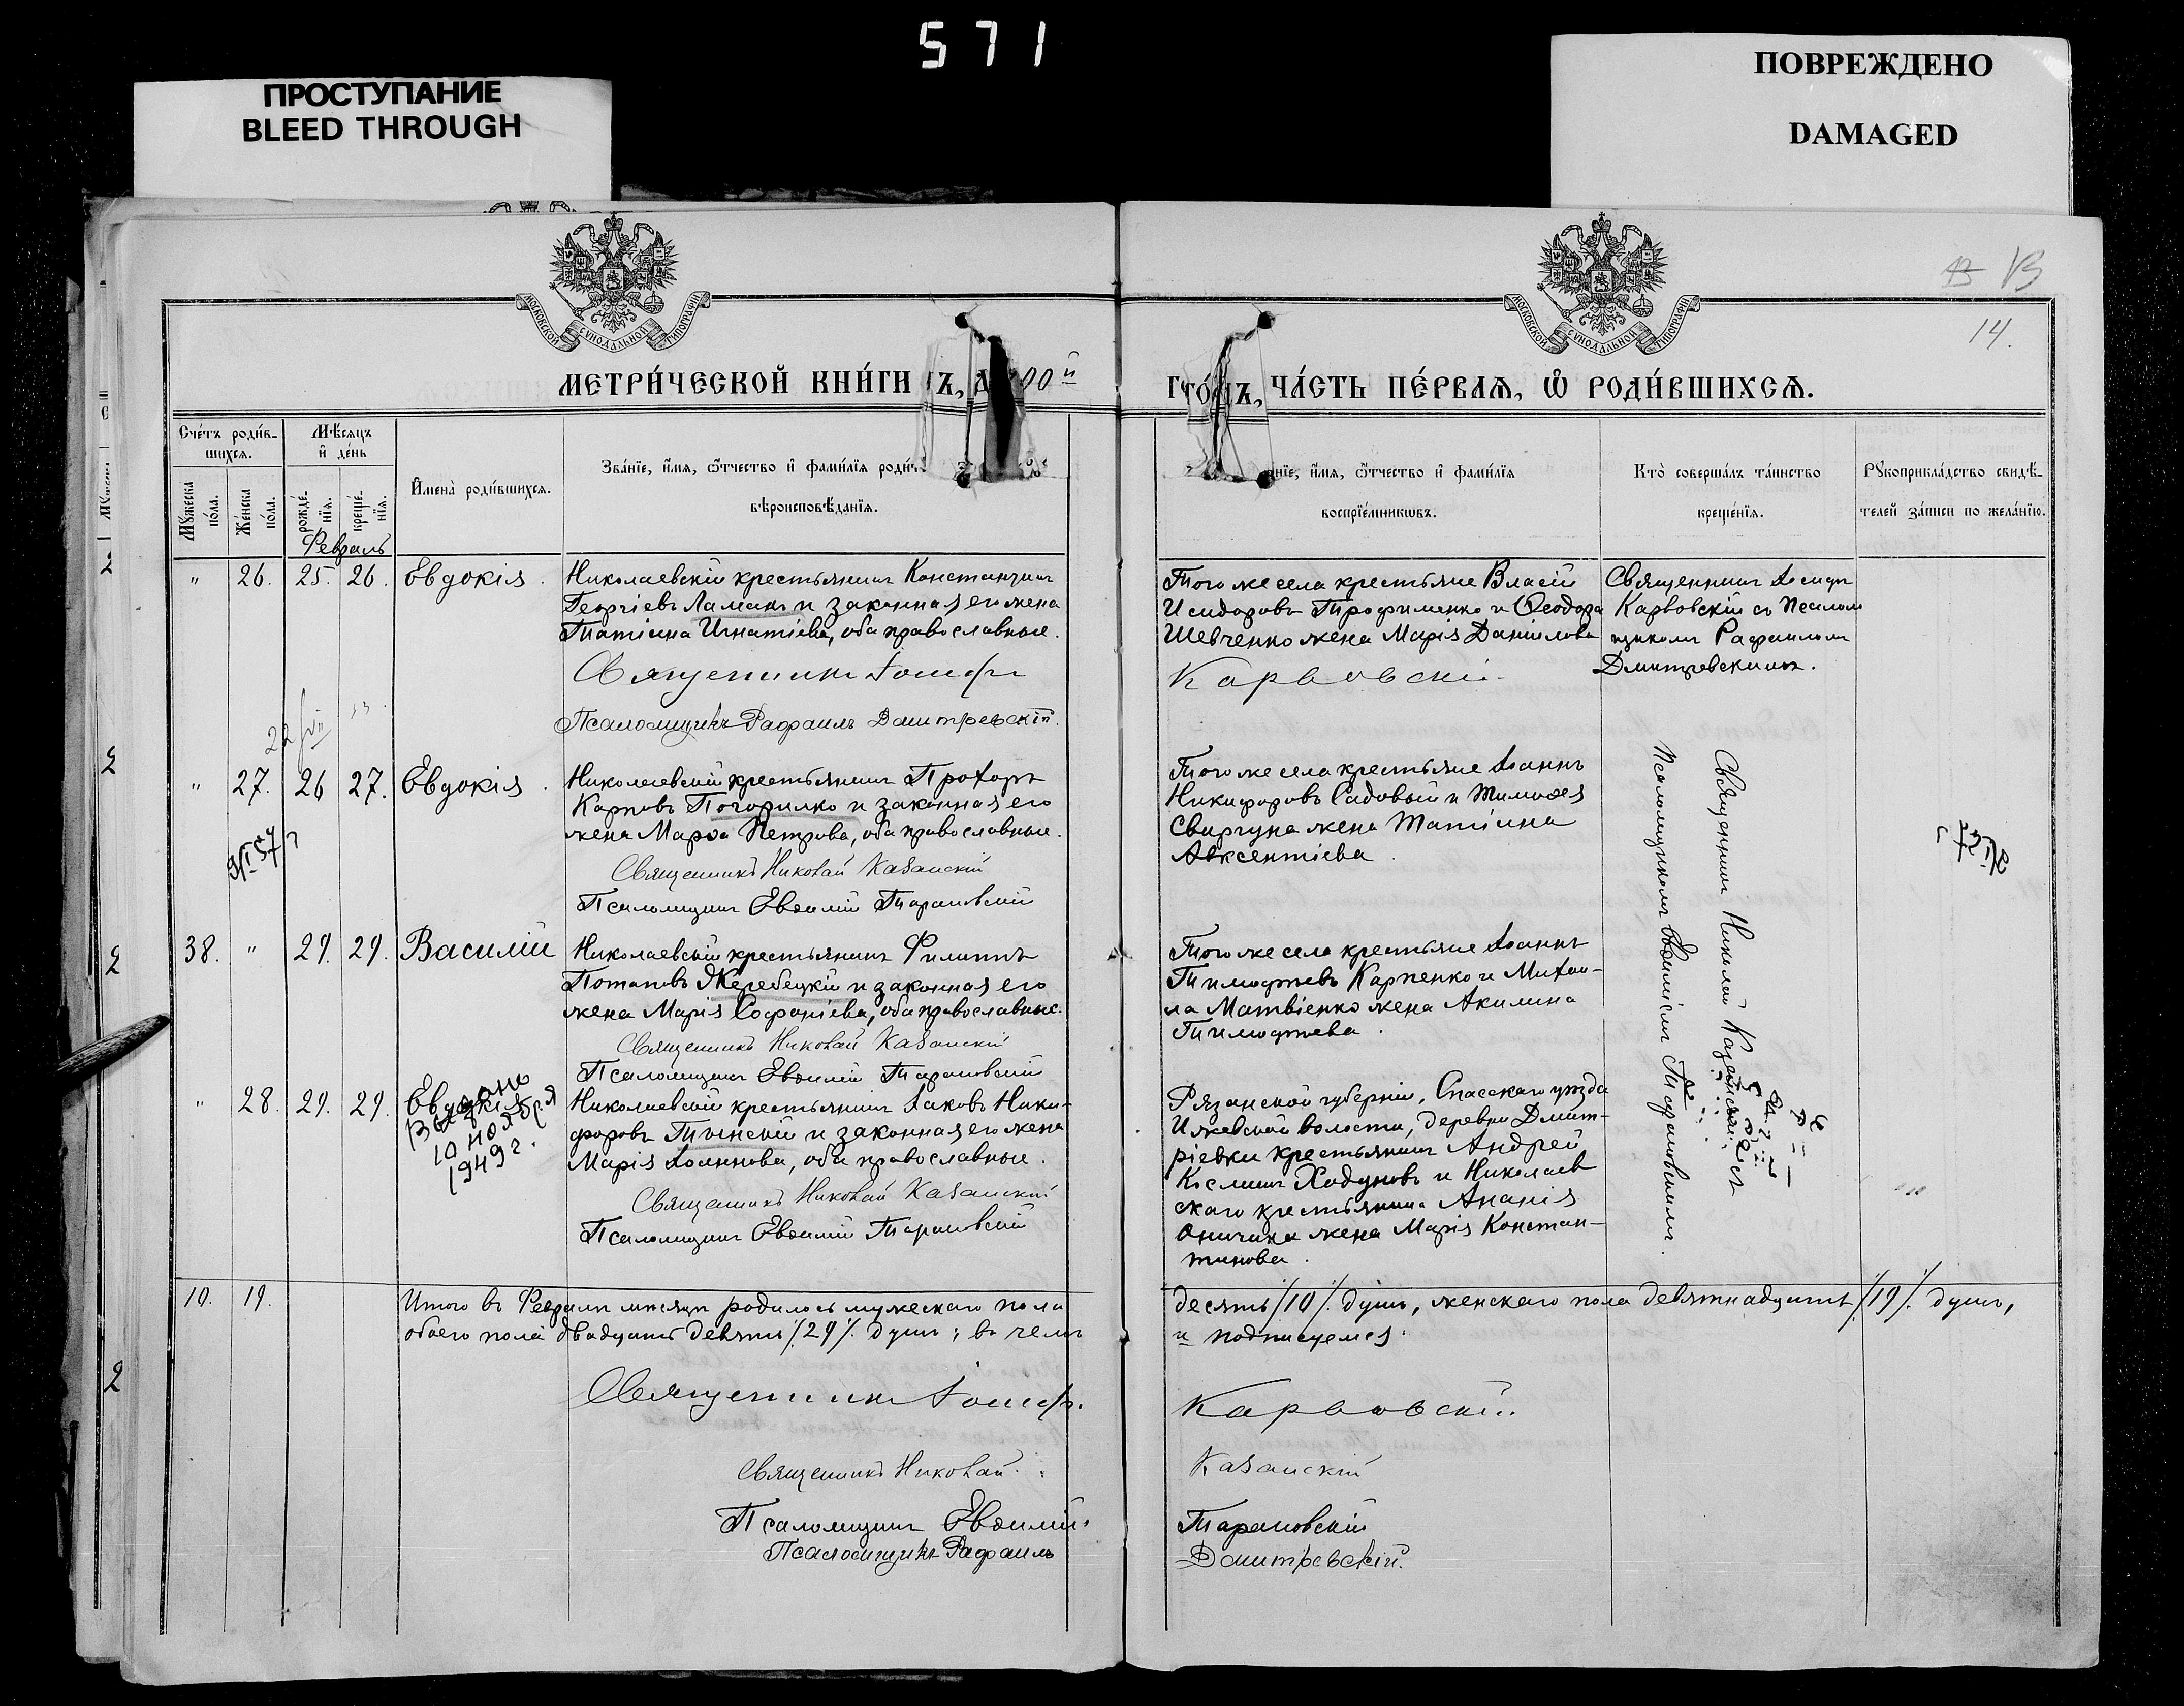 571
ПРОСТУПАНИЕ
BLEED THROUGH
ПОВРЕЖДЕНО
DAMAGED
МОСКОВСКОЙ СУНОДАЛЬНОЙ ТИПОГРАФІИ
МОСКОВСКОЙ СУНОДАЛЬНОЙ ТИПОГРАФІИ
13
14.
МЕТРИ́ЧЕСКОЙ КНИ́ГИ
00й
ЧА́СТЬ ПЕ́РВАЯ, Ѡ҆ РОДИ́ВШИХСЯ.
Сче́тъ роди́в-
шихся.
Мѣ́сяцъ
и҆ де́нь
Мꙋ́жеска
по́ла.
Же́нска
по́ла.
рожде́-
нїя.
креще́-
нїя.
И҆мена̀ роди́вшихся.
Зва́нїе, и҆́мя, ѻ҆́тчество и҆ фами́лїя
вѣроисповѣ́данїя.
и҆́мя, ѻ҆́тчество и҆ фами́лїя
воспрїе́мникѡвъ.
Кто̀ соверша́лъ та́инство
креще́нїя.
Рꙋкоприкла́дство свидѣ́-
телей за́писи по жела́нїю.
Февраль
" 26. 25. 26. Евдокія.
Николаевскій крестьянинъ Константинъ
Георгіевъ Ламанъ и законная его жена
Татіана Игнатіева, оба православные.
Священникъ Іосифъ
Псаломщикъ Рафаилъ Дмитревскій.
Того же села крестьяне Власій
Исидоровъ Трофименко и Ѳеодора
Шевченко жена Марія Даніилова
Карвовскій
Священникъ Іосифъ
Карвовскій съ псалом
щикомъ Рафаиломъ
Дмитревскимъ.
" 27. 26 27. Евдокія.
Николаевскій крестьянинъ Прохоръ
Карповъ Погорилко и законная его
жена Марѳа Петрова, оба православные.
Священникъ Николай Казанскій
Псаломщикъ Евѳимій Тарановскій
Того же села крестьяне Іоаннъ
Никифоровъ Садовый и Тимоѳея
Свиргуна жена Татіана
Авксентіева.
Священникъ Николай Казанскій съ
Псаломщикомъ Евѳиміемъ Тарановскимъ.
38. " 29. 29. Василій
Николаевскій крестьянинъ Филиппъ
Потаповъ Жеребецкій и законная его
жена Марія Софоніева, оба православные.
Священникъ Николай Казанскій
Псаломщикъ Евѳимій Тарановскій
Того же села крестьяне Іоаннъ
Тимофѣевъ Карпенко и Михаи-
ла Матвіенко жена Акилина
Тимофѣева.
" 28. 29. 29. Евдокія
Выдано
10 ноября
1949 г.
Николаевскій крестьянинъ Іаковъ Ники-
форовъ Тынскій и законная его жена
Марія Іоаннова, оба православные.
Священникъ Николай Казанскій
Псаломщикъ Евѳимій Тарановскій
Рязанской губерніи, Спасскаго уѣзда
Ижевской волости, деревни Дмит-
ріевки крестьянинъ Андрей
Ходуновъ и Николаев
скаго крестьянина Ананія
жена Марія Констан-
тинова.
10. 19.
Итого въ Февралѣ мѣсяцѣ родилось мужескаго пола
обоего пола двадцать девять /29/ душъ; въ чемъ
десять /10/ душъ, женскаго пола девятнадцать /19/ душъ,
и подписуемся:
Священникъ Іосифъ
Карвовскій.
Священникъ Николай
Казанскій
Псаломщикъ Евѳимій
Тарановскій
Псаломщикъ Рафаилъ
Дмитревскій.